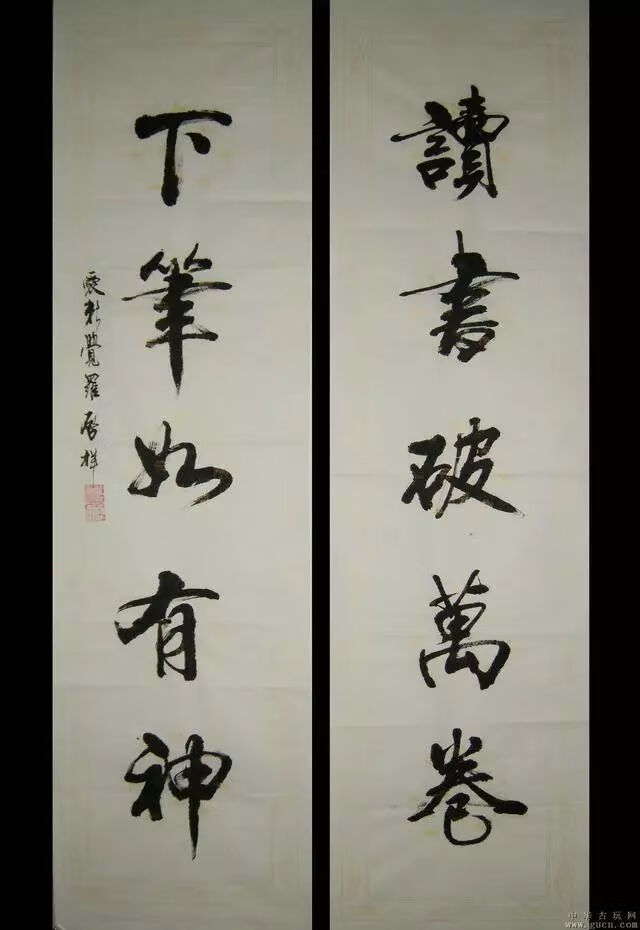 讀書破萬卷
下筆如有神
愛新覺羅啓祥
中华古玩网
www.gucn.com